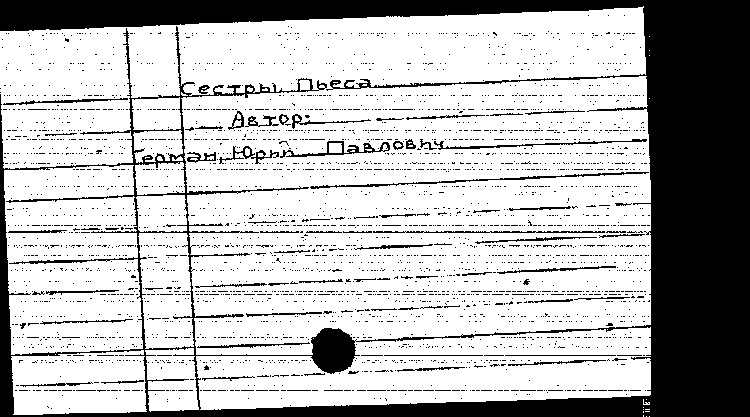 Сестры. Пьеса
Автор:
Герман, Юрий Павлович